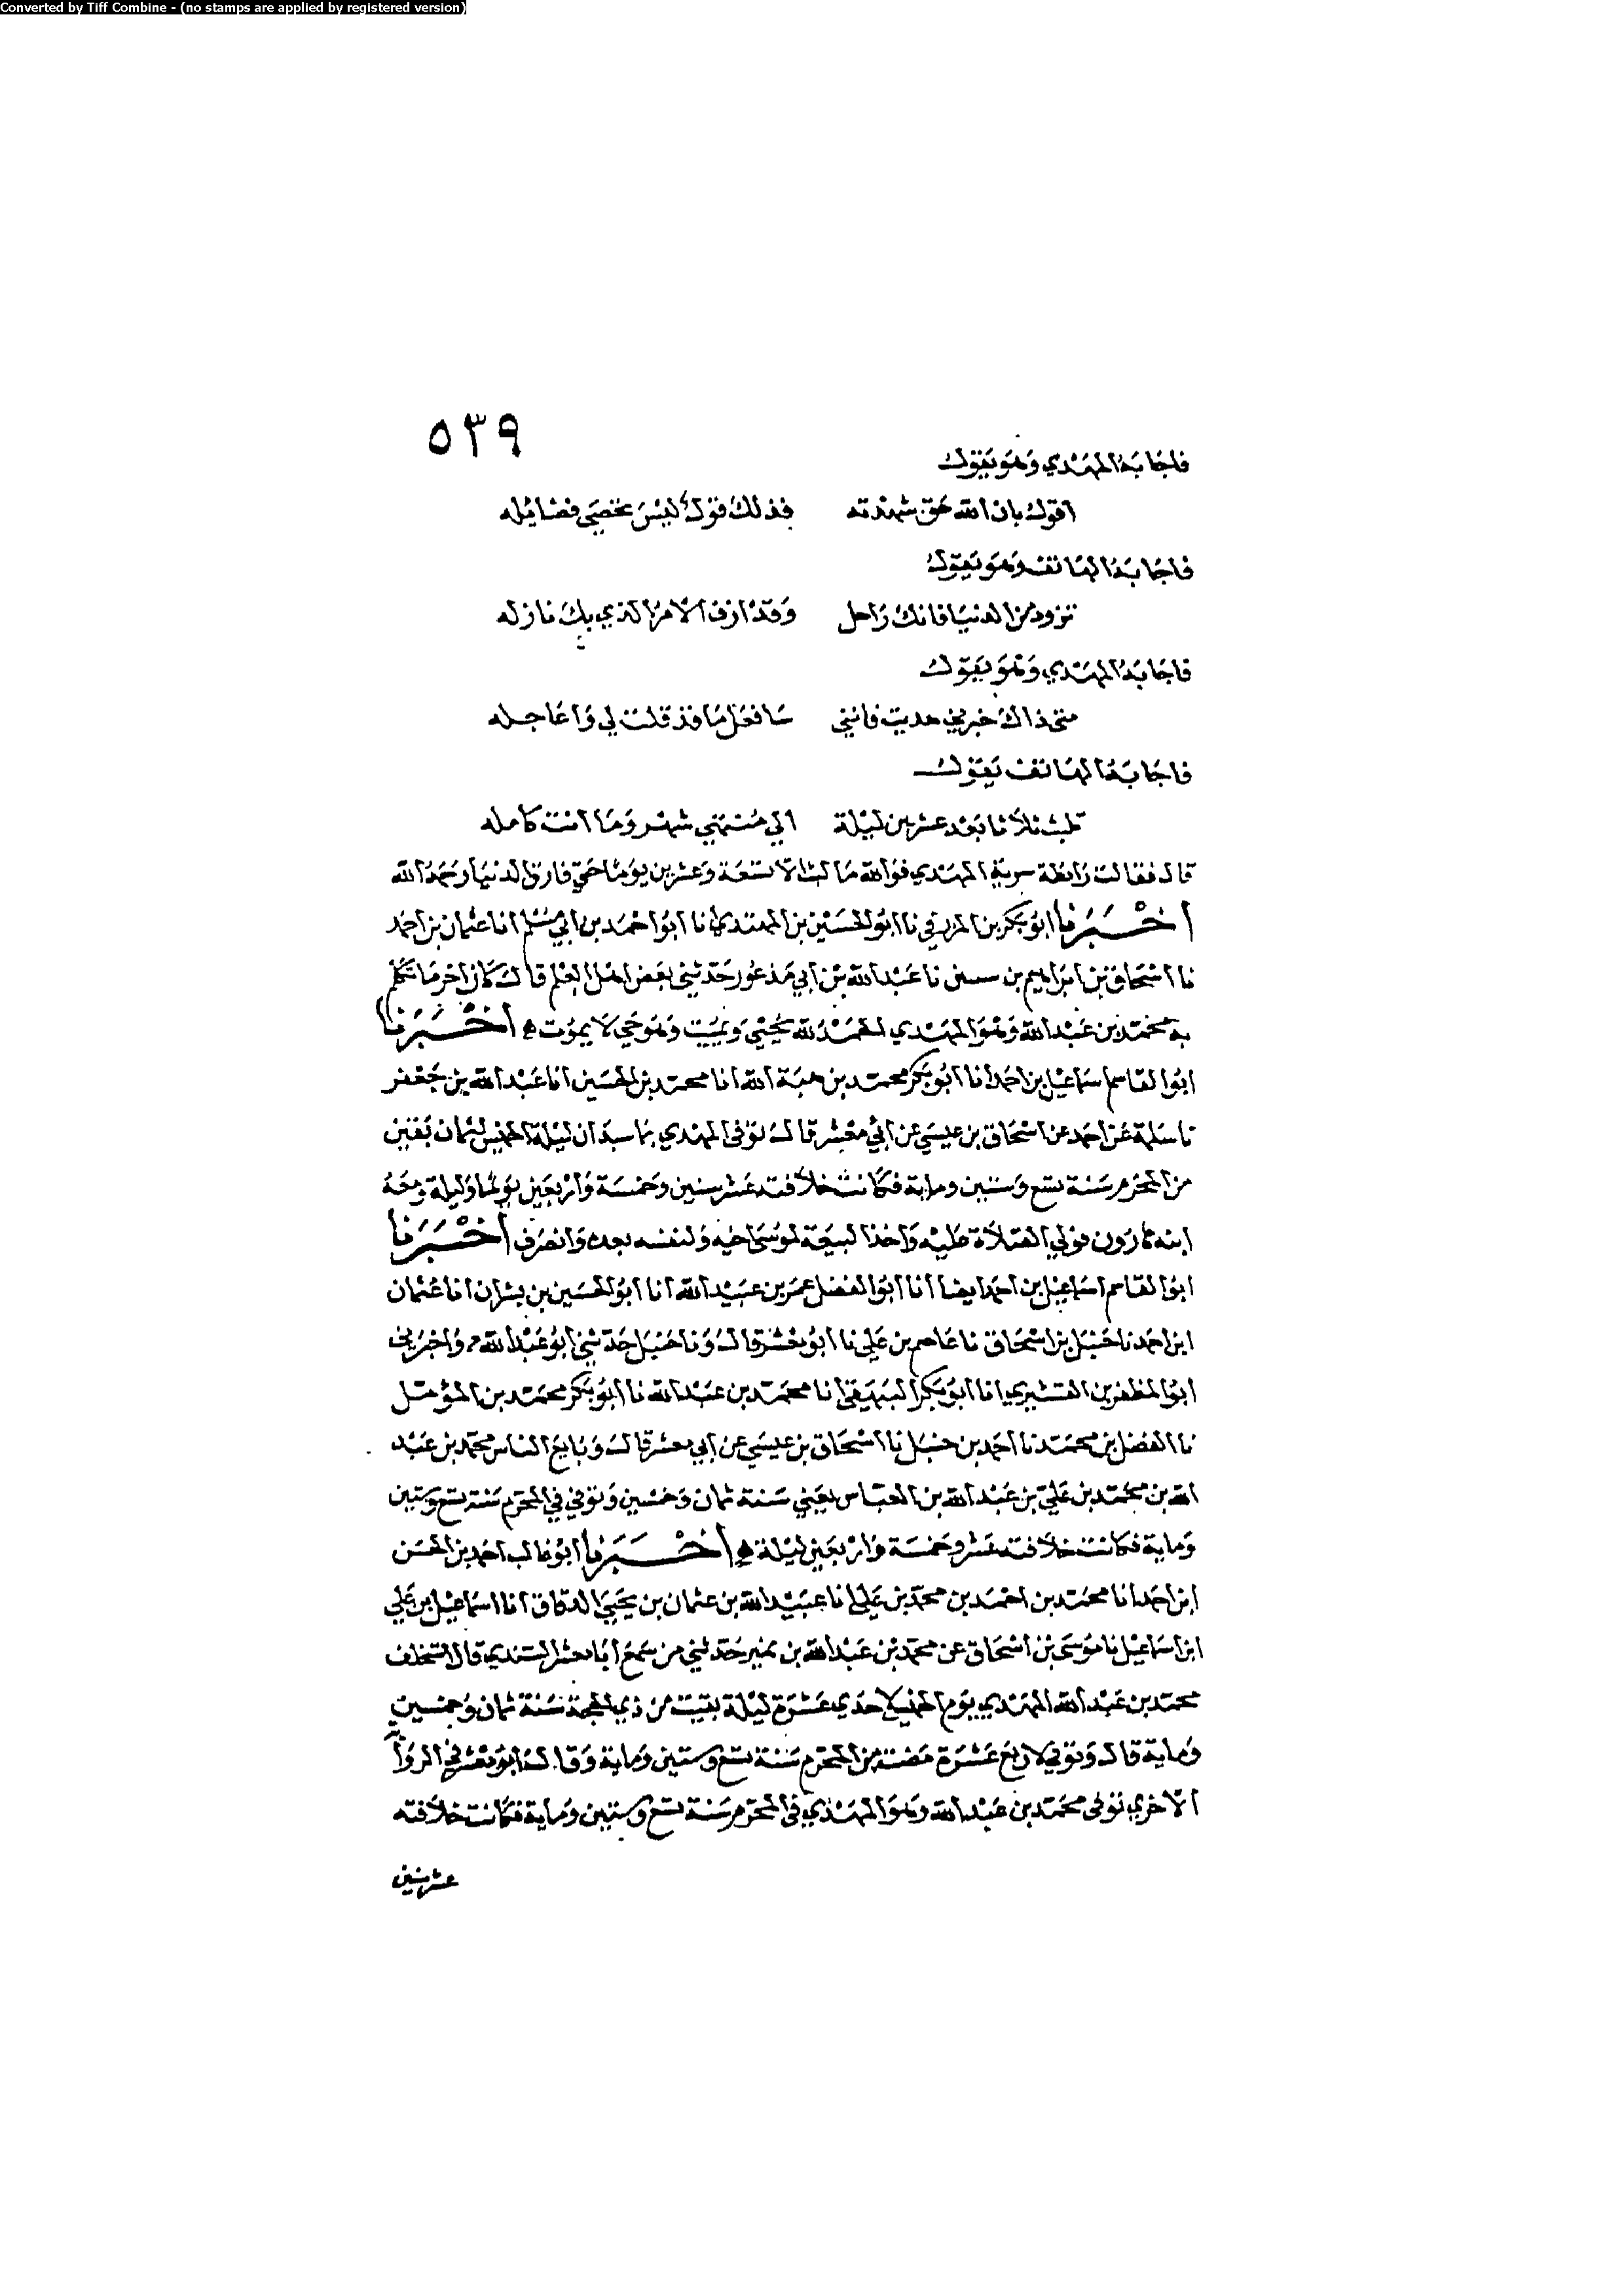 Converted by Tiff Combine - (no stamps are applied by registered version)
٥٣٩
فاجابه المهدي وهو يقول
اقول بان الله حق شهدته فذلك قول ليس تحصى فضايله
فاجابه الهاتف وهو يقول
تزود من الدنيا فانك راحل وقد ازف الامر الذي بك نازله
فاجابه المهدي وهو يقول
متى ذاك خبرني هديت فانني سافعل ما قد قلت لي واعاجله
فاجابه الهاتف يقول
تلبث ثلاثا بعد عشرين ليلة الي منتهي شهر وما انت كامله
قال فقالت رايطة سرية المهدي فوالله ما لبث الا تسعة وعشرين يوما حتي فارق الدنيا رحمه الله
اخبرنا ابو بكر بن المزرفي نا ابو الحسين بن المهتدي نا ابو احمد بن ابي مسلم انا عثمان بن احمد
نا اسحاق بن ابراهيم بن سنين نا عبد الله بن ابي مذعور حدثني بعض اهل العلم قال كان اخر ما تكلم
به محمد بن عبد الله وهو المهدي الحمد لله يحيي ويميت وهو حي لا يموت ه اخبرنا
ابو القاسم اسماعيل بن احمد انا ابو بكر محمد بن هبة الله انا محمد بن الحسين انا عبد الله بن جعفر
نا سلمة عن احمد عن اسحاق بن عيسي عن ابي معشر قال توفى المهدي بماسبدان ليلة الخميس لثمان بقين
من المحرم سنة تسع وستين وماية فكانت خلافته عشر سنين وخمسة واربعين يوما وليلة ومعه
ابنه هارون فولي الصلاة عليه واخذ البيعة لموسى اخيه ولنفسه بعده وانصرف اخبرنا
ابو القاسم اسماعيل بن احمد ايضا انا ابو الفضل عمر بن عبيد الله انا ابو الحسين بن بشران انا عثمان
ابن احمد نا حنبل بن اسحاق نا عاصم بن علي نا ابو معشر قال ونا حنبل حدثني ابو عبد الله ه واخبرني
ابو المظفر بن القشيري انا ابو بكر البيهقي انا محمد بن عبد الله نا ابو بكر محمد بن المؤمل
نا الفضل بن محمد نا احمد بن حنبل نا اسحاق بن عيسي عن ابي معشر قال وبايع الناس محمد بن عبد
الله بن محمد بن علي بن عبد الله بن العباس يعني سنة ثمان وخمسين وتوفي في المحرم سنة تسع وستين
وماية فكانت خلافته عشر وخمسة واربعين ليلة ه اخبرنا ابو غالب احمد بن الحسن
ابن احمد انا محمد بن احمد بن محمد بن علي انا عبيد الله بن عثمان بن يحيي الدقاق انا اسماعيل بن علي
ابن اسماعيل نا موسى بن اسحاق عن محمد بن عبد الله بن نمير حدثني من سمع ابا معشر السندي قال استخلف
محمد بن عبد الله المهدي يوم الخميس لاحدي عشرة ليلة بقيت من ذي الحجة سنة ثمان وخمسين
وماية قال وتوفي لاربع عشرة مضت من المحرم سنة تسع وستين وماية وقال ابو معشر في الرواية
الاخري توفى محمد بن عبد الله وهو المهدي في المحرم سنة تسع وستين وماية فكانت خلافته
عشر سنين